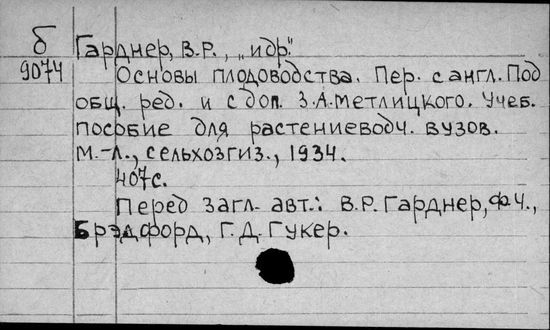 б Гарднер, В.Р., „идр."
9074 Основы плодоводства. Пер. с англ. Под
общ. ред. и с доп. З.А.Метлицкого. Учеб.
пособие для растениеводч. вузов.
М.-Л., Сельхозгиз., 1934.
407с.
Перед загл. авт.: В.Р. Гарднер, Ф.Ч.,
Брэдфорд, Г.Д. Гукер.